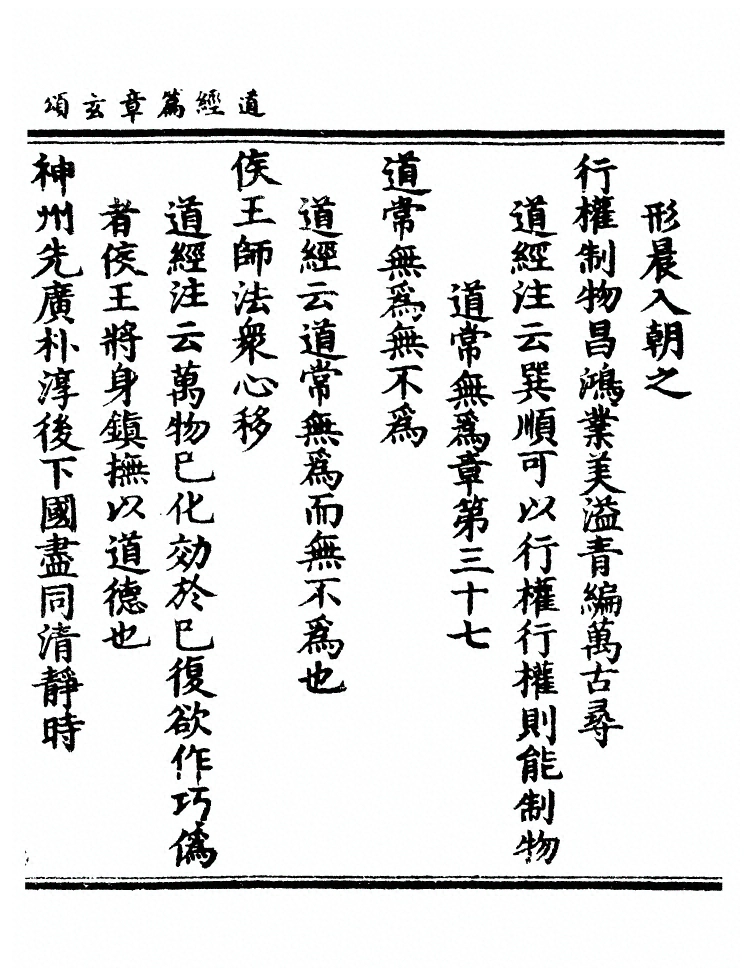 道經篇章玄頌
形晨入朝之
行權制物昌鴻業美溢青編萬古尋
道經注云巽順可以行權行權則能制物
道常無爲章第三十七
道常無爲無不爲
道經云道常無爲而無不爲也
侯王師法衆心移
道經注云萬物巳化効於巳復欲作巧僞
者侯王將身鎮撫以道德也
神州先廣朴淳後下國盡同清靜時